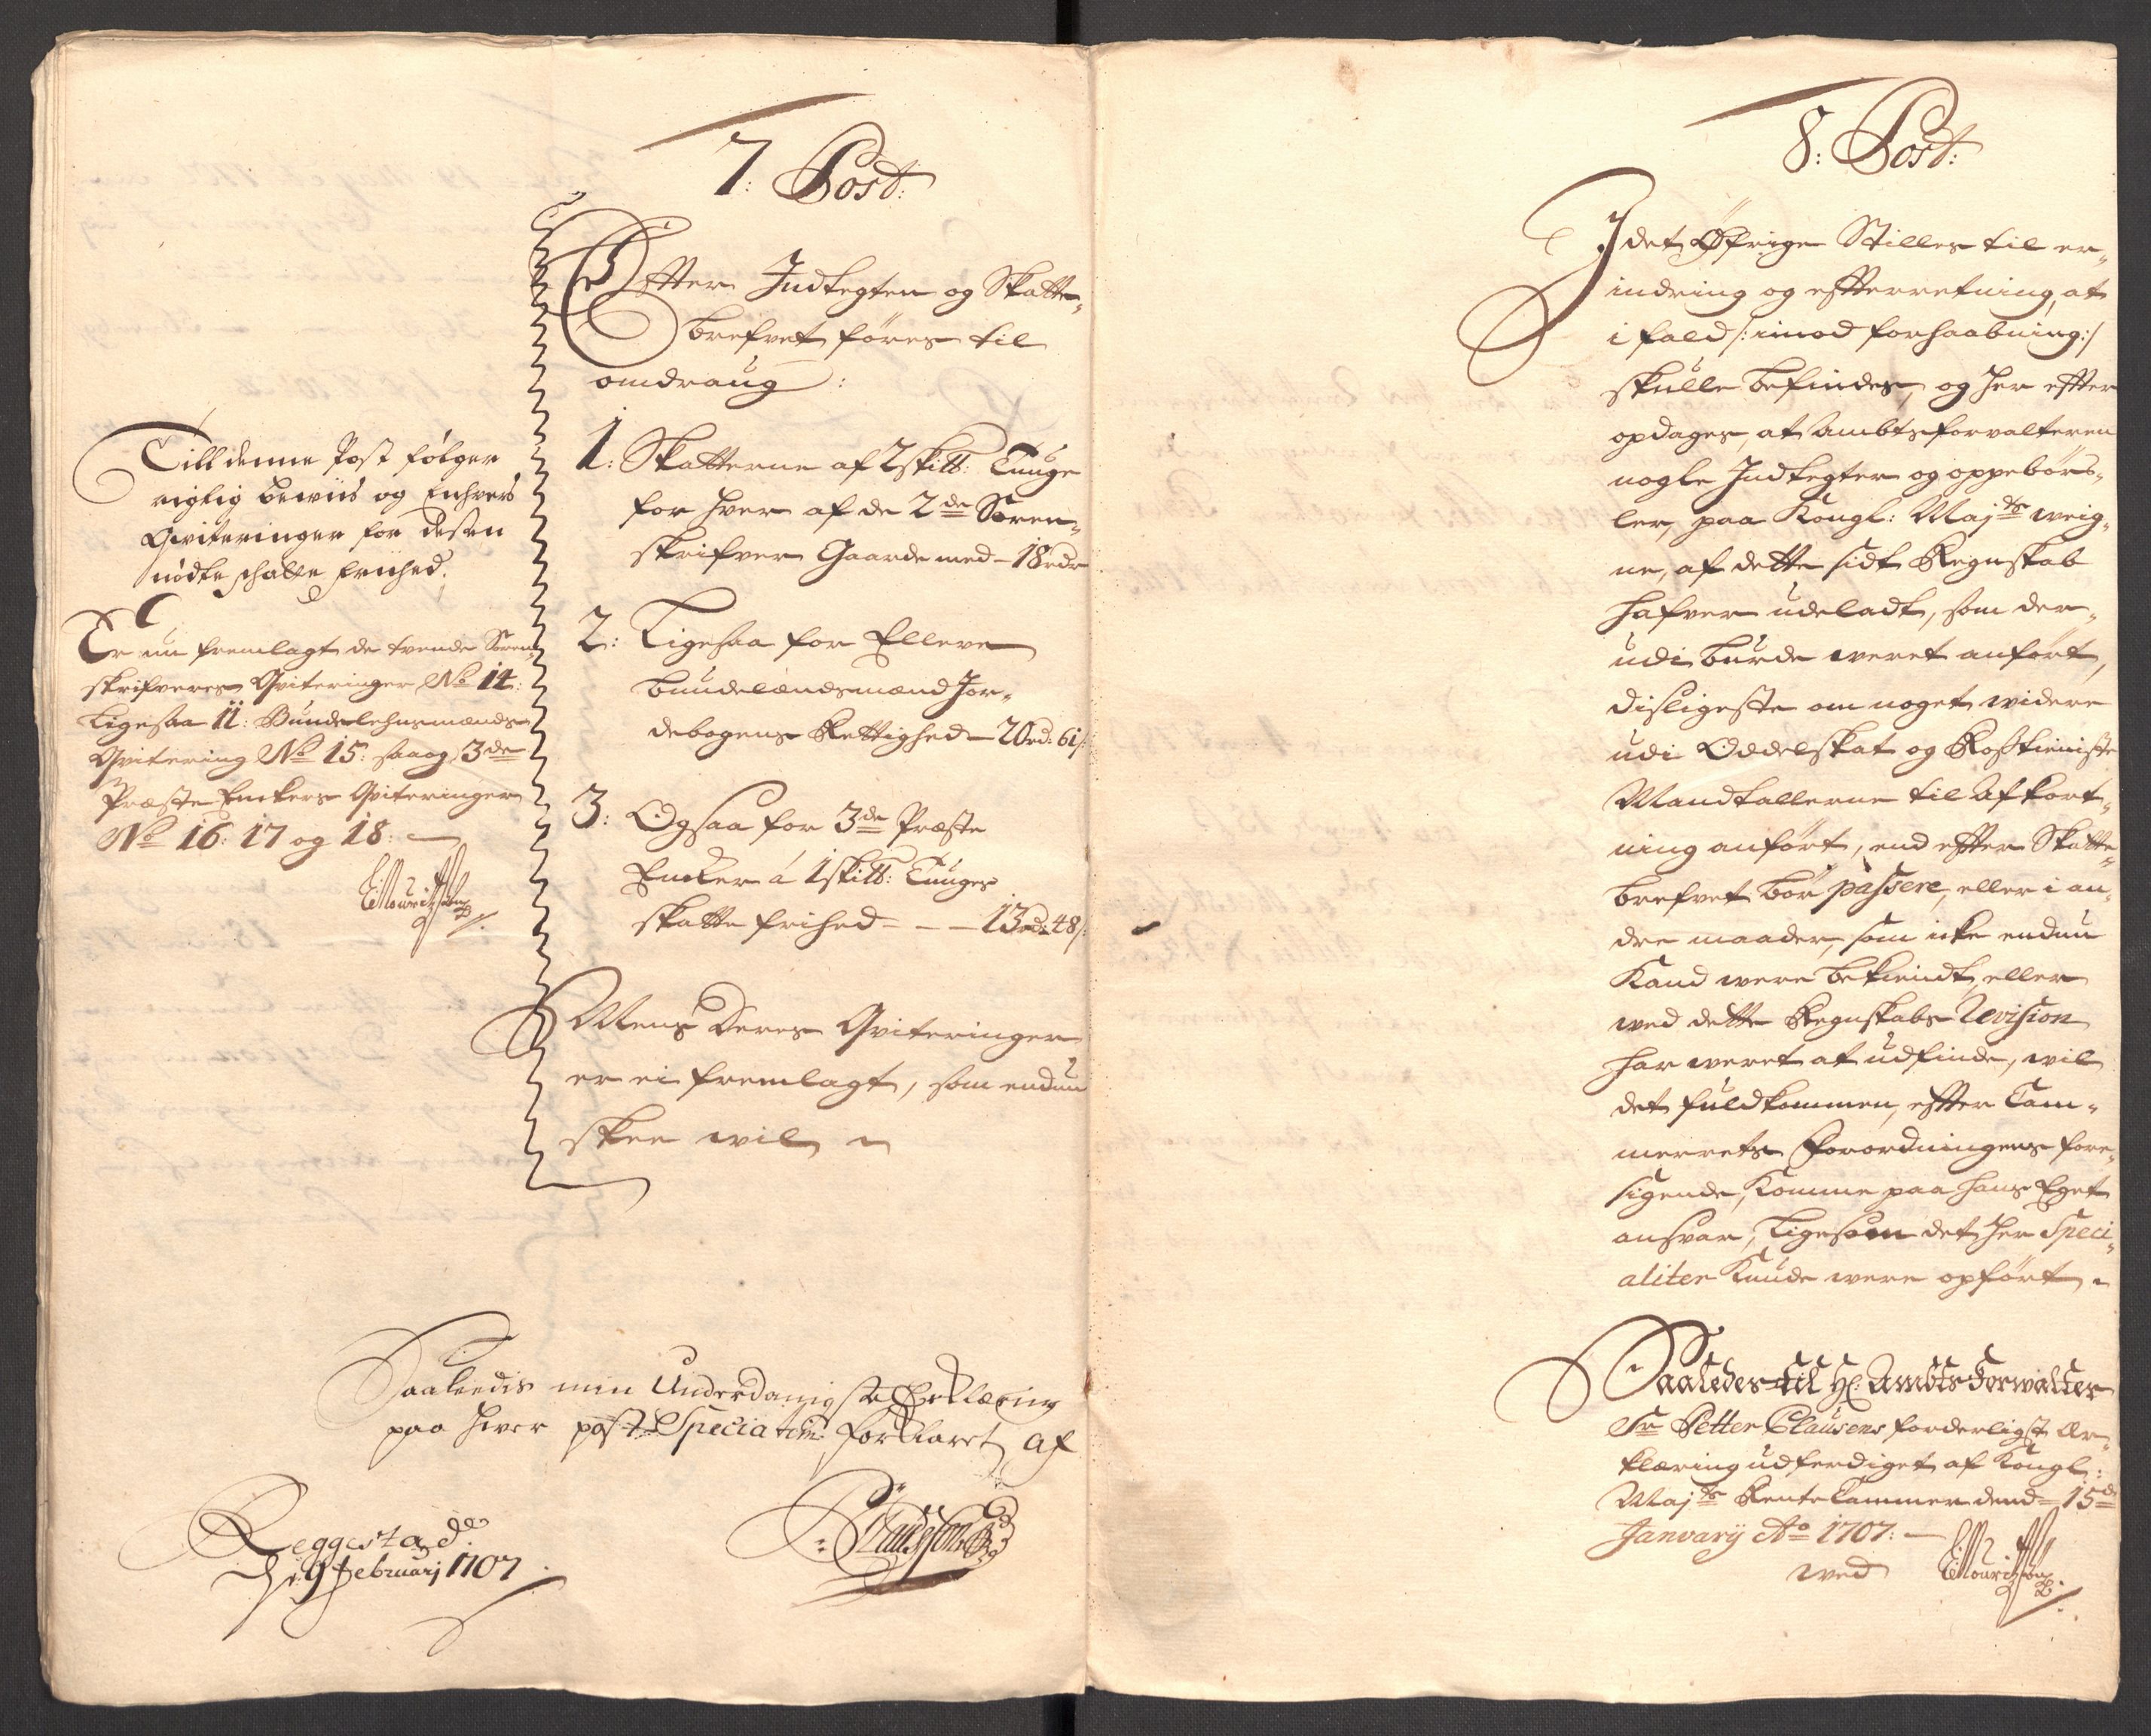 7: Post:
Efter Indtegten og Skatte-
brefvet føres til
omdraug:
1: Skatterne af 2 skill: Tunge
for hver af de 2de Soren-
skrifver Gaarde med - 18 rdr
2: Ligesaa for Elleve
bundelændsmænd Jor-
debogens Rettighed - 20 rd: 61 s:
3: Ogsaa for 3de Præste
Encker á 1 skill: Tunges
skatte frihed - - - 13 rd: 48 s:
Mens deres Qviteringer
er ei fremlagt, som endnu
skee vil
Till denne Post følger
rigtig bewiis og Enhvers
Qviteringer for desen
nödte schatte friihed.
Er nu fremlagt de tvende Soren-
skrifveres Qviteringer No 14:
Ligesaa 11: Bundelehnsmænds
Qvitering No 15: saa og 3de
Præste Enkers Qviteringer
No 16: 17 og 18:
Saaleedis min Underdanigste Erklæring
paa hver post Speciatim forklaret af
Reggestad
d: 9 Februarj 1707
8: Post:
I det Øfrige Stilles til er-
indring og efterretning, at
i fald /: imod forhaabning :/
skulle befindes, og her efter
opdages, at Ambtsforvalteren
nogle Indtegter og oppebørs-
ler, paa Kongl: Maj:ts veig-
ne, af dette sidt Regnskab
hafver udeladt, som der-
udi burde veret anført,
disligeste om noget widere
udi Odelskat og Rostieniste
Mandtallerne til Afkort-
ning anført, end efter Skatte-
brefvet bør passere, eller i an-
dre maader, som icke endnu
Kand were bekiendt, eller
wed dette Regnskabs Revision
har weret at udfinde, wil
det fuldkommen, efter Cam-
merrets Forordningens fore-
sigende, komme paa hans Eget
ansvar, ligesom det her speci-
aliter kunde were opført,
Saaledes til Hr: Ambts Forwalter
Sr Petter Clausens forderligst Er-
klæring udferdiget af Kongl:
Maj:ts Rente Cammer dend 15de
Januarij Ao 1707:
wed